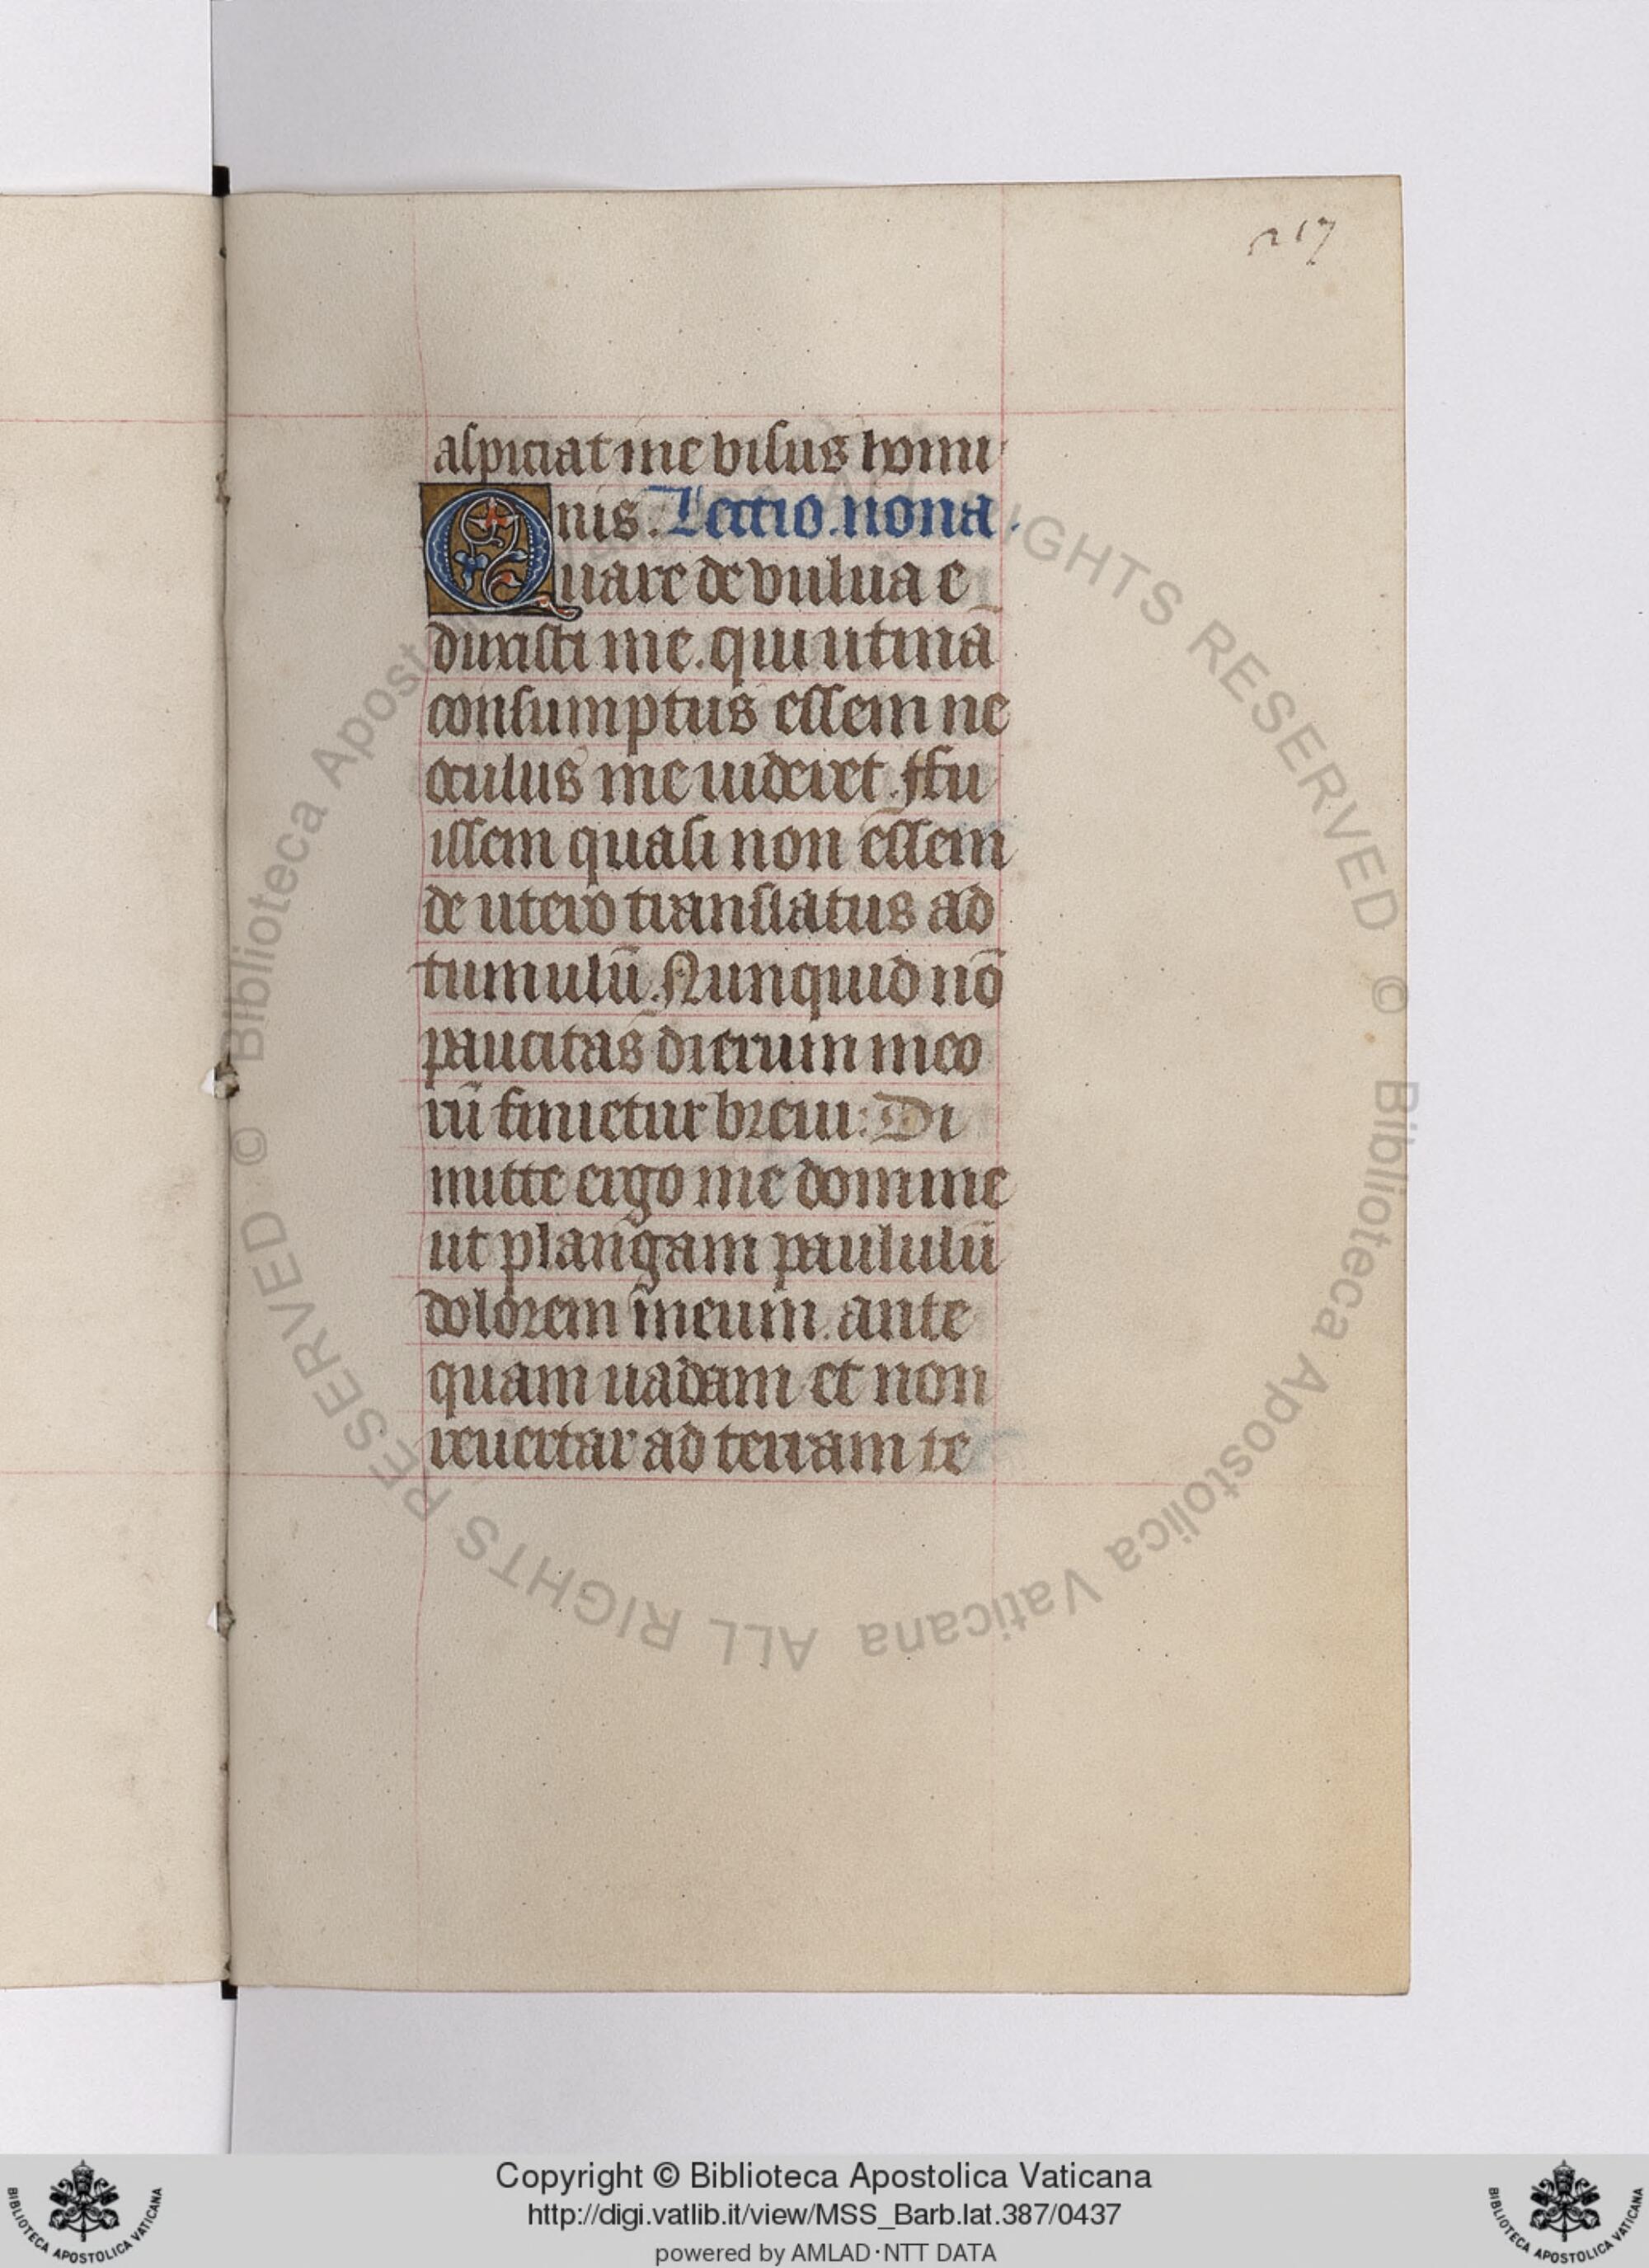 217
aspiciat me visus homi
nis. Lectio nona.
Quare de vulua e
duxisti me. qui utinā
consumptus essem ne
oculus me uideret. ffu
issem quasi non essem
de utero translatus ad
tumulū. Nunquid nō
paucitas dierum meo
rū finietur breui: Di
mitte ergo me domine
ut plangam paululū
dolorem meum. ante
quam uadam et non
reuertar ad terram te
© Biblioteca Apostolica Vaticana ALL RIGHTS RESERVED © Biblioteca Apostolica Vaticana ALL RIGHTS RESERVED
Copyright © Biblioteca Apostolica Vaticana
http://digi.vatlib.it/view/MSS_Barb.lat.387/0437
powered by AMLAD·NTT DATA
BIBLIOTECA APOSTOLICA VATICANA
BIBLIOTECA APOSTOLICA VATICANA